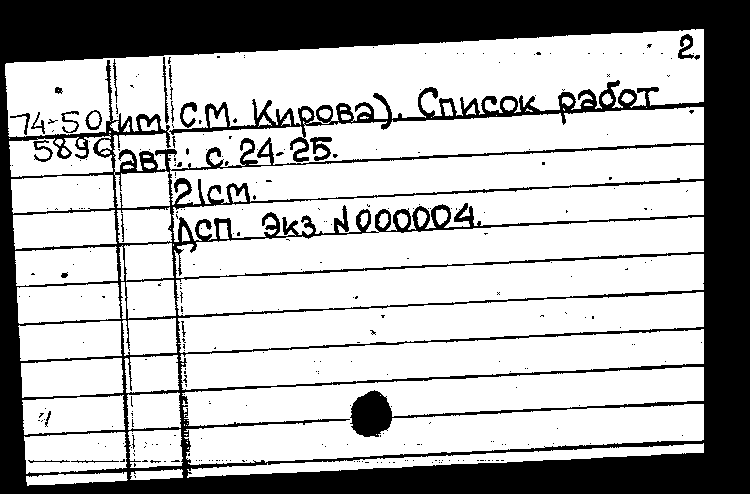 2.
74-50 им. С.М. Кирова). Список работ
5896 авт.: с. 24-25.
21см.
Дсп. Экз. N000004.
4